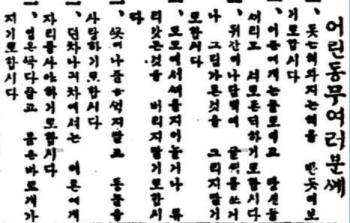 어린동무여러분쎄
一、돗는해와지는해를 반듯이보
기로합시다
一、어룬에게는물론이고 당신들
씨리도 서로존대하기로합시다
一、뒤간이나담벽에 글씨를쓰거
나 그림가튼것을 그리지말기
로합시다
一、도로에서쎄를지어놀거나 류
리갓튼것을 버리지말기로합시
다
一、쏫이나풀을썩지말고 동물을
사랑하기로합시다
一、뎐차나긔차에서는 어룬에게
자리를사양하기로합시다
一、입은쏙다물고 몸은바르게가
지기로합시다